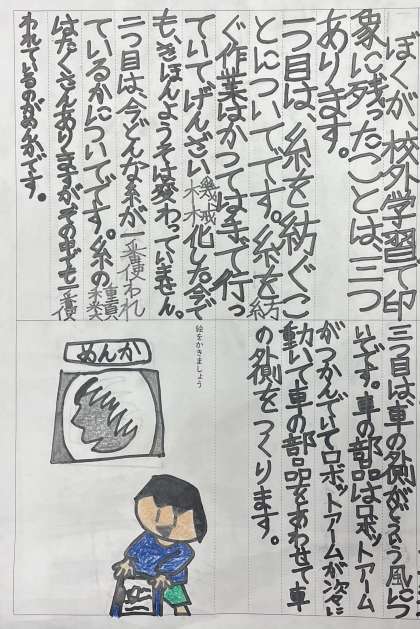 ぼくが校外学習で印
象に残ったことは、三つ
あります。
一つ目は、糸を紡ぐこ
とについてです。糸を紡
ぐ作業はかつては手で行っ
ていてげんざい機械化した今で
も、きほんようそは変わっていません。
二つ目は、今どんな糸が一番使われ
ているかについてです。糸の種類
はたくさんありますがその中でも一番使
われているのがめんかです。
三つ目は、車の外側がどういう風につ
いです。車の部品はロボットアーム
がつかんでいてロボットアームが次々に
動いて車の部品をあわせて車
の外側をつくります。
絵をかきましょう
めんか